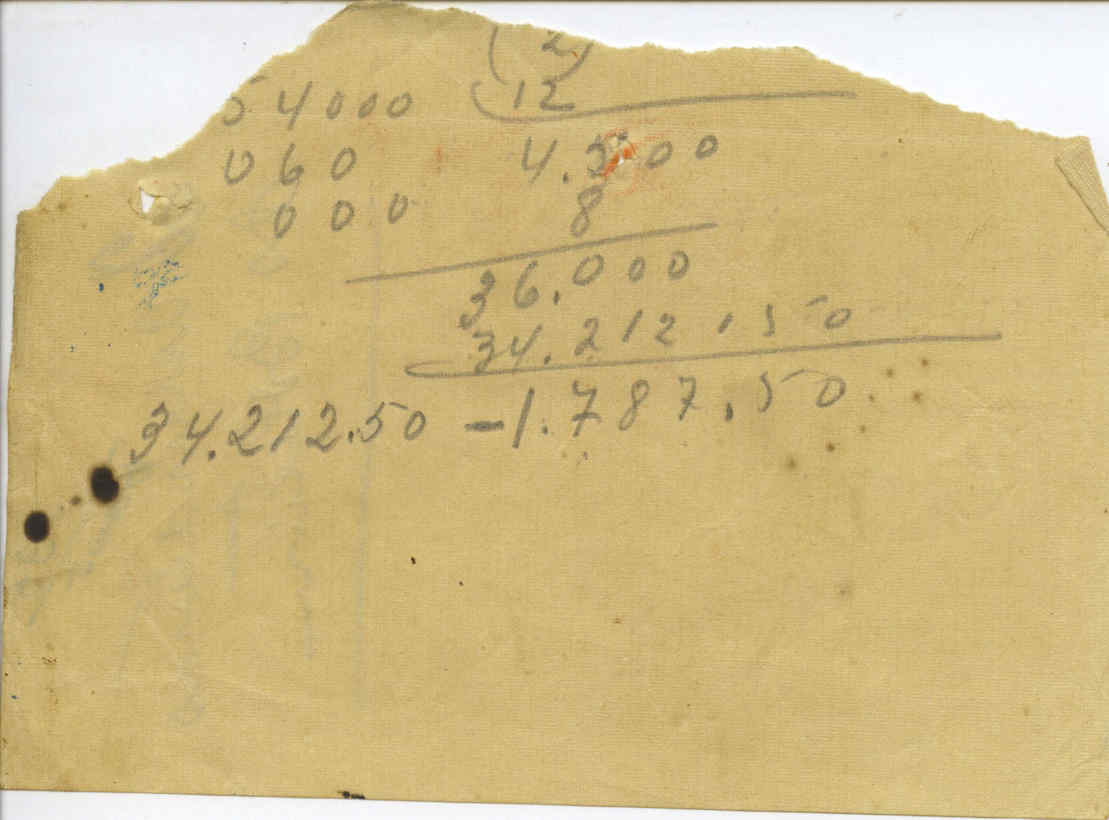 2
54000 12
060 4.500
000 8
36.000
34.212,50
34.212.50 - 1.787,50